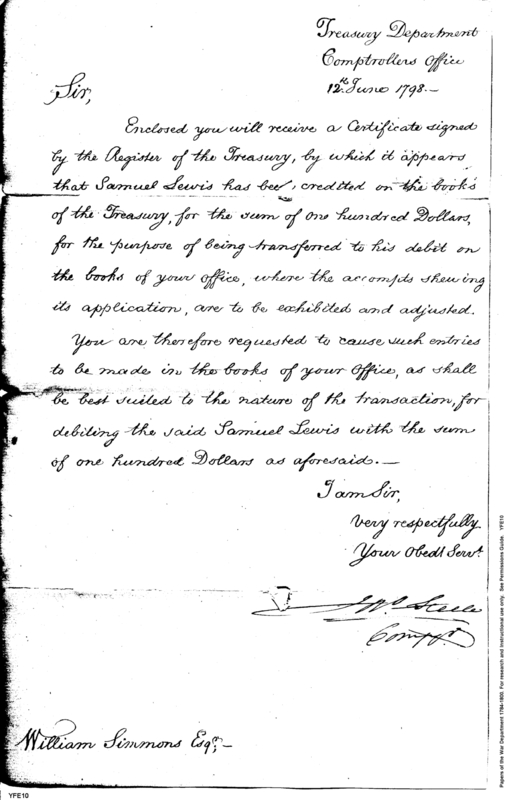 Treasury Department
Comptrollers Office
12th June 1798.—
Sir,
Enclosed you will receive a Certificate signed
by the Register of the Treasury, by which it appears
that Samuel Lewis has been credited on the books
of the Treasury, for the sum of one hundred Dollars,
for the purpose of being transferred to his debit on
the books of your office, where the accompts shewing
its application, are to be exhibited and adjusted.
You are therefore requested to cause such entries
to be made in the books of your Office, as shall
be best suited to the nature of the transaction, for
debiting the said Samuel Lewis with the sum
of one hundred Dollars as aforesaid.—
I am Sir,
very respectfully
Your Obedt Servt.
Jno. Steele
Compr.
William Simmons Esqr,—
YFE10
Papers of the War Department 1784-1800. For research and instructional use only. See Permissions Guide. YFE10